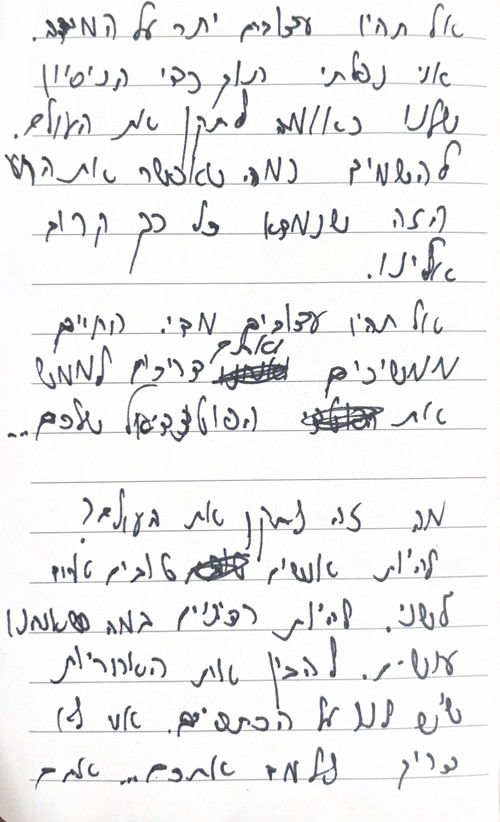 אל תהיו עצובים יתר על המידה.
אני נפלתי תוך כדי הניסיון
שלנו כאומה לתקן את העולם.
להשמיד כמה שאפשר את הרוע
הזה שנמצא כל כך קרוב
אלינו.
אל תהיו עצובים מדי. החיים
ואתם
ממשיכים צריכים לממש
את הפוטנציאל שלכם...
מה זה לתקן את העולם?
להיות אנשים טובים אחד
לשני. להיות רציניים במה שאנחנו
עושים. להבין את האחריות
שיש לנו על הכתפיים. אני לא
צריך ללמד אתכם... אתם